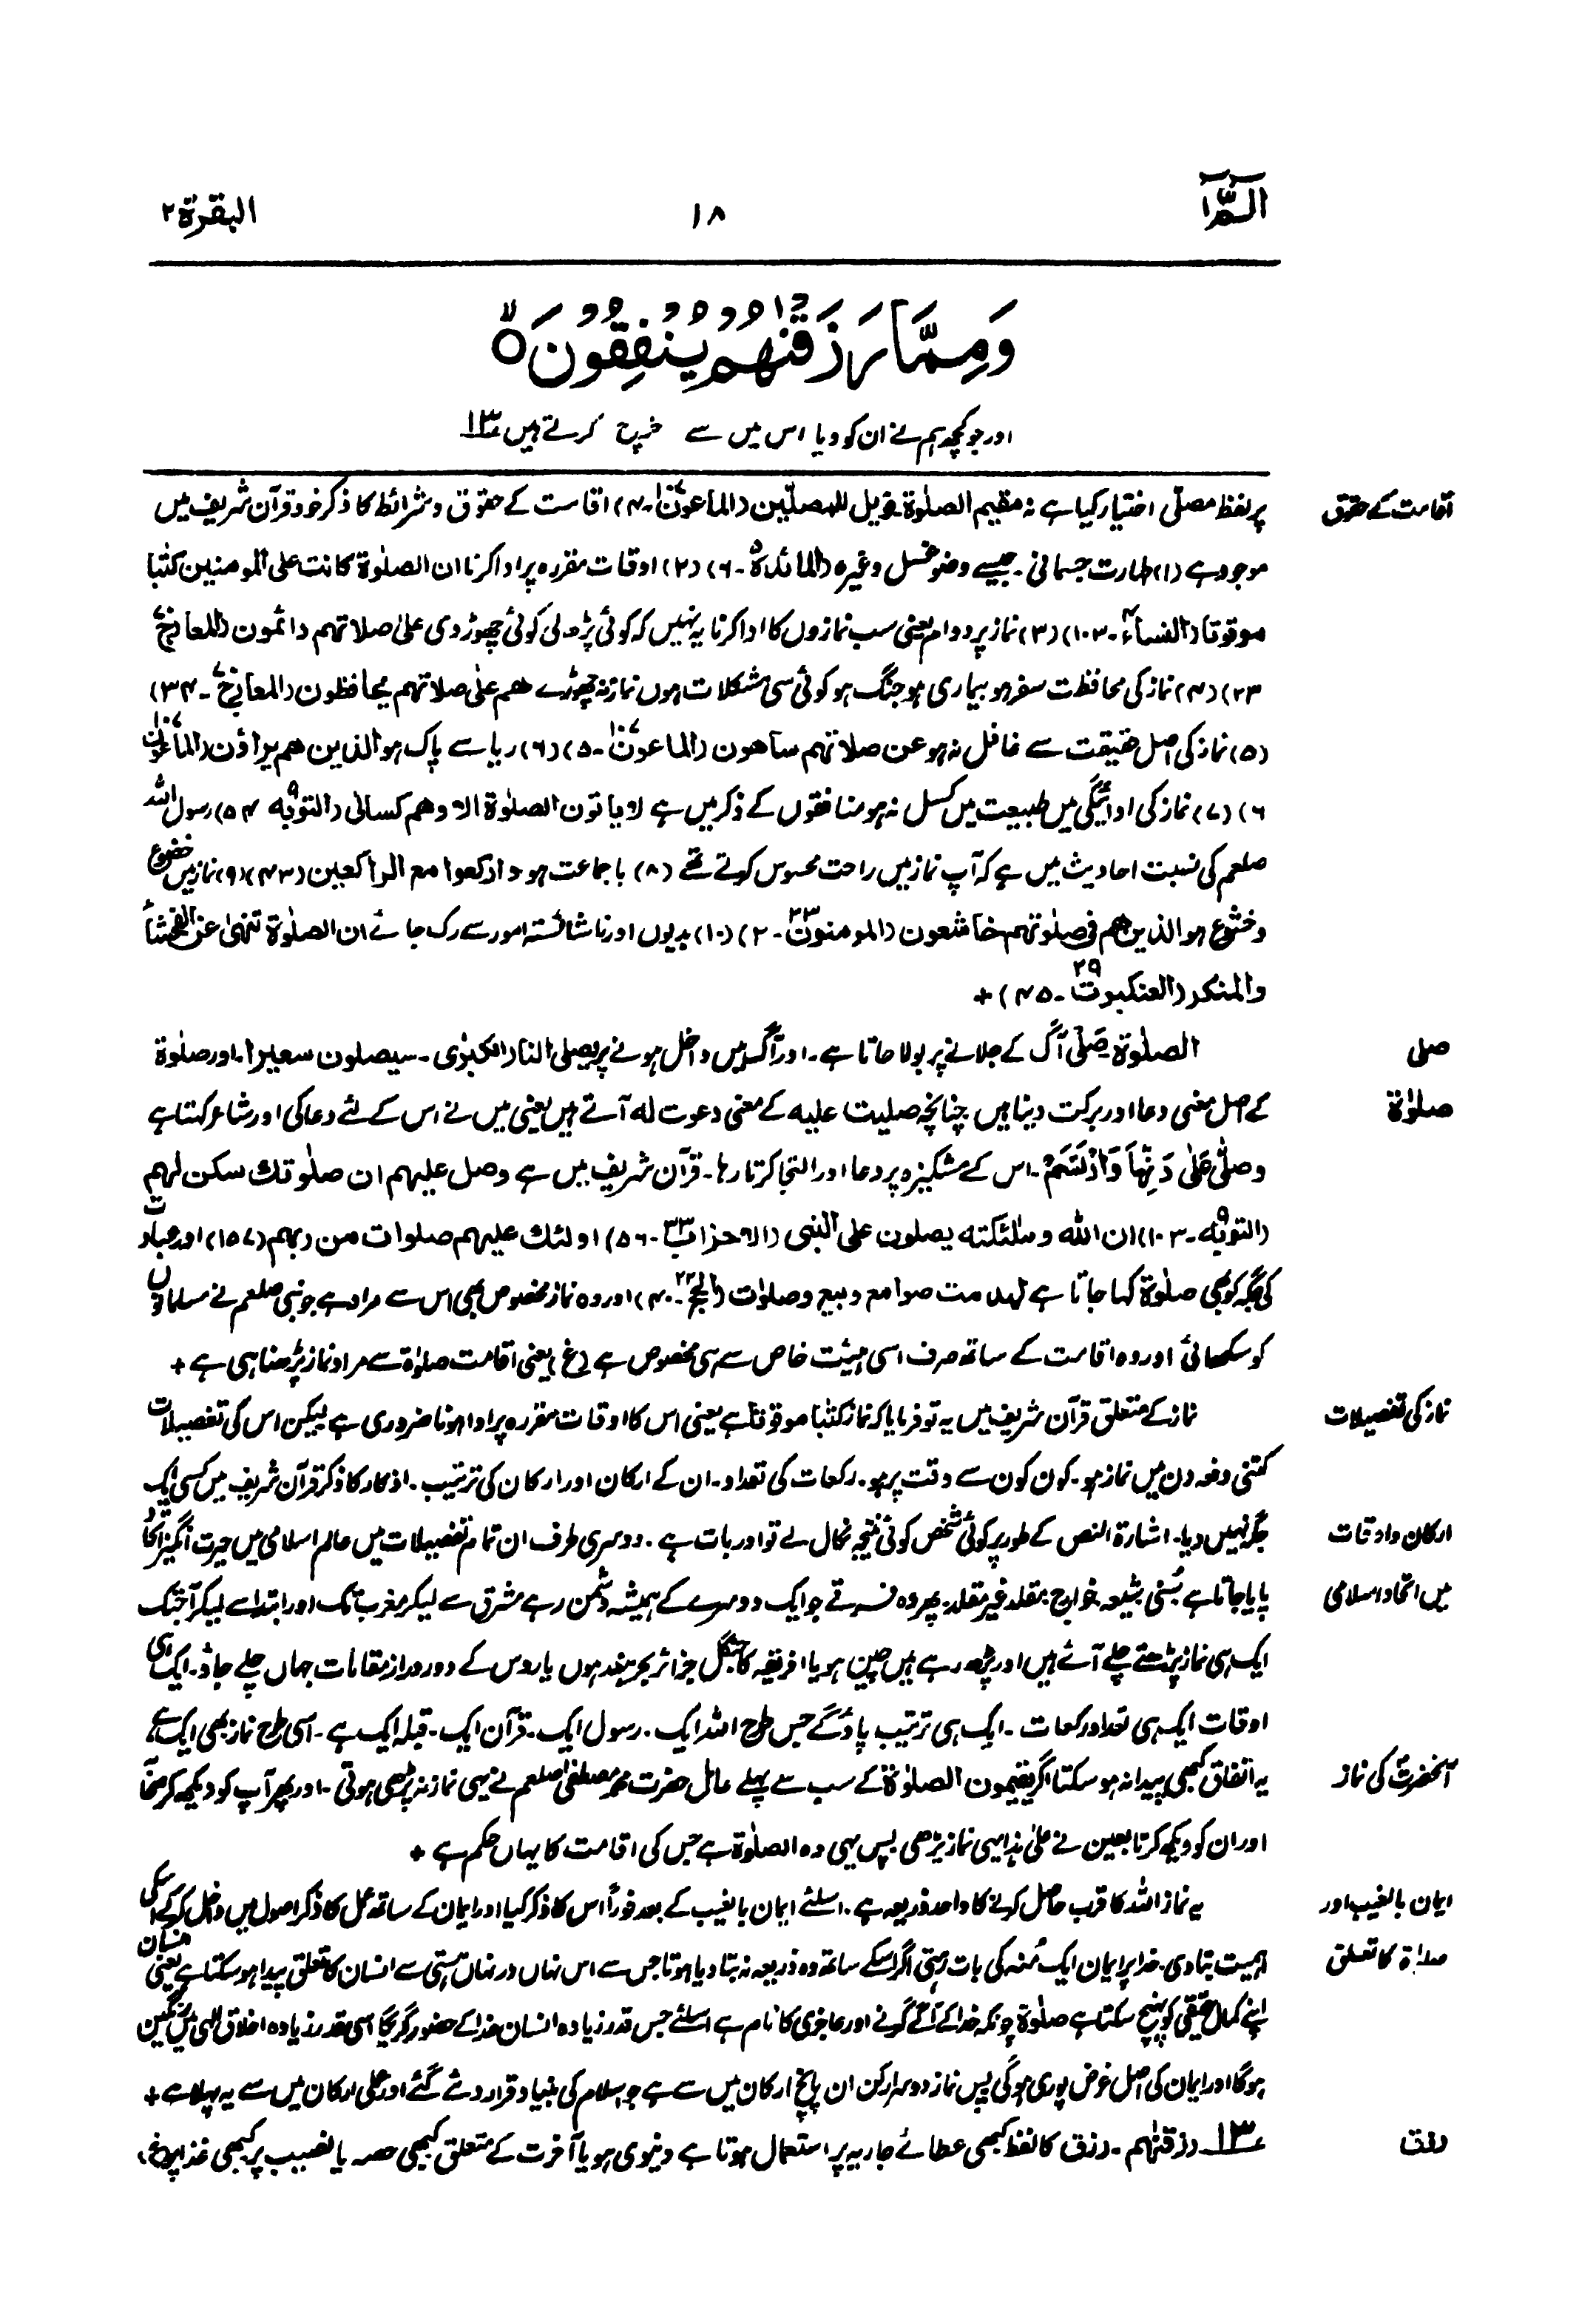 الٓمّٓ ۱ ۱۸ البقرۃ ۲
وَمِمَّا رَزَقْنٰهُمْ يُنْفِقُوْنَ ۙ
اور جو کچھ ہم نے ان کو دیا اس میں سے خرچ کرتے ہیں ۱۳؎
اقامت کے حقوق
پر لفظ مصلّی اختیار کیا ہے نہ مقیم الصلوٰۃ۔ فویل للمصلّین (الماعون۱۰۷۔۴) اقامت کے حقوق و شرائط کا ذکر خود قرآن شریف میں
موجود ہے (۱) طہارت جسمانی۔ جیسے وضو غسل وغیرہ (المائدۃ۵۔۶) (۲) اوقات مقررہ پر ادا کرنا ان الصلوٰۃ کانت علی المومنین کتٰبا
موقوتا (النساء۴۔۱۰۳) (۳) نماز پر دوام یعنی سب نمازوں کا ادا کرنا یہ نہیں کہ کوئی پڑھ لی کوئی چھوڑ دی علیٰ صلاتہم دائمون (المعارج۷۰
۲۳) (۴) نماز کی محافظت سفر ہو بیماری ہو جنگ ہو کوئی سی مشکلات ہوں نماز نہ چھوڑے ھم علیٰ صلاتہم یحافظون (المعارج۷۰۔۳۴)
(۵) نماز کی اصل حقیقت سے غافل نہ ہو عن صلاتہم ساھون (الماعون۱۰۷۔۵) (۶) ریا سے پاک ہو الذین ھم یراؤن (الماعون۱۰۷
۶) (۷) نماز کی ادائیگی میں طبیعت میں کسل نہ ہو منافقوں کے ذکر میں ہے لا یاتون الصلوٰۃ الا وھم کسالیٰ (التوبہ۹ ۵۴) رسول اللہ
صلعم کی نسبت احادیث میں ہے کہ آپ نماز میں راحت محسوس کرتے تھے (۸) با جماعت ہو وارکعوا مع الراکعین (۴۳) (۹) نماز میں خضوع
و خشوع ہو الذین ھم فی صلٰوتہم خاشعون (المومنون۲۳۔۲) (۱۰) بدیوں اور ناشائستہ امور سے رک جائے ان الصلوٰۃ تنہیٰ عن الفحشاء
والمنکر (العنکبوت۲۹۔۴۵) +
صلی
الصلوٰۃ۔ صَلْی آگ کے جلانے پر بولا جاتا ہے۔ اور آگ میں داخل ہونے پر یصلی النار الکبرٰی۔ سیصلون سعیرا۔ اور صلوٰۃ
صلوٰۃ
کے اصل معنی دعا اور برکت دینا ہیں چنانچہ صلیت علیہ کے معنی دعوت لہ آتے ہیں یعنی میں نے اس کے لئے دعا کی اور شاعر کہتا ہے
وصلّٰی عَلٰی دَنِّہَا وَارْتَسَمْ۔ اس کے مشکیزہ پر دعا اور التجا کرتا رہا۔ قرآن شریف میں ہے وصل علیہم ان صلٰوتک سکن لہم
(التوبہ۹۔۱۰۳) ان اللہ وملٰئکتہ یصلون علی النبی (الاحزاب۳۳۔۵۶) اولئک علیہم صلوات من ربہم (۱۵۷) اور عبادت
کی جگہ کو بھی صلوٰۃ کہا جاتا ہے لہدمت صوامع وبیع وصلوٰت (الحج۲۲۔۴۰) اور وہ نماز مخصوص بھی اس سے مراد ہے جو نبی صلعم نے مسلمانوں
کو سکھائی اور وہ اقامت کے ساتھ صرف اسی ہیئت خاص سے ہی مخصوص ہے (غ) یعنی اقامت صلوٰۃ سے مراد نماز پڑھنا ہی ہے +
نماز کی تفصیلات
نماز کے متعلق قرآن شریف میں یہ تو فرمایا کہ نماز کتٰبا موقوتا ہے یعنی اس کا اوقات مقررہ پر ادا ہونا ضروری ہے لیکن اس کی تفصیلات
کتنی دفعہ دن میں نماز ہو۔ کون کون سے وقت پر ہو۔ رکعات کی تعداد۔ ان کے ارکان اور ارکان کی ترتیب۔ اذکار کا ذکر قرآن شریف میں کسی ایک
ارکان و اوقات
جگہ نہیں دیا۔ اشارۃ النص کے طور پر کوئی شخص کوئی نتیجہ نکال لے تو اور بات ہے۔ دوسری طرف ان تمام تفصیلات میں عالم اسلامی میں حیرت انگیز اتحاد
میں اتحاد اسلامی
پایا جاتا ہے سُنی، شیعہ، خوارج، مقلد، غیر مقلد، پھر وہ فرقے جو ایک دوسرے کے ہمیشہ دشمن رہے مشرق سے لیکر مغرب تک اور ابتدا سے لیکر آجتک
ایک ہی نماز پڑھتے چلے آئے ہیں اور پڑھ رہے ہیں چین ہو یا افریقہ کا جنگل جزائر بحر ہند ہوں یا روس کے دور دراز مقامات جہاں چلے جاؤ۔ ایک ہی
اوقات ایک ہی تعداد رکعات۔ ایک ہی ترتیب پاؤ گے جس طرح اللہ ایک۔ رسول ایک۔ قرآن ایک۔ قبلہ ایک ہے۔ اسی طرح نماز بھی ایک ہے،
آنحضرتؐ کی نماز
یہ اتفاق کبھی پیدا نہ ہو سکتا اگر یقیمون الصلوٰۃ کے سب سے پہلے عامل حضرت محمد مصطفیٰ صلعم نے یہی نماز نہ پڑھی ہوتی۔ اور پھر آپ کو دیکھ کر صحابہ
اور ان کو دیکھ کر تابعین نے علیٰ ہذا یہی نماز پڑھی پس یہی وہ الصلوٰۃ ہے جس کی اقامت کا یہاں حکم ہے +
ایمان بالغیب اور
یہ نماز اللہ کا قرب حاصل کرنے کا واحد ذریعہ ہے۔ اسلئے ایمان بالغیب کے بعد فوراً اس کا ذکر کیا اور ایمان کے ساتھ عمل کا ذکر اصول میں داخل کر کے اسکی
صلوٰۃ کا تعلق
اہمیت بتا دی۔ خدا پر ایمان ایک مُنہ کی بات رہتی اگر اسکے ساتھ وہ ذریعہ نہ بتا دیا ہوتا جس سے اس نہاں در نہاں ہستی سے انسان کا تعلق پیدا ہو سکتا ہے یعنی انسان
اپنے کمال حقیقی کو پہنچ سکتا ہے صلوٰۃ چونکہ خدا کے آگے گرنے اور عاجزی کا نام ہے اسلئے جس قدر زیادہ انسان خدا کے حضور گریگا اسی قدر زیادہ اخلاق الٰہی میں رنگین
ہوگا اور ایمان کی اصل غرض پوری ہوگی پس نماز دوسرا رکن ان پانچ ارکان میں سے ہے جو اسلام کی بنیاد قرار دئے گئے اور عملی ارکان میں سے یہ پہلا ہے +
رزق
۱۳؎ رزقنٰہم۔ رزق کا لفظ کبھی عطائے جاریہ پر استعمال ہوتا ہے دنیوی ہو یا آخرت کے متعلق کبھی حصہ یا نصیب پر کبھی غذا پر (غ)،